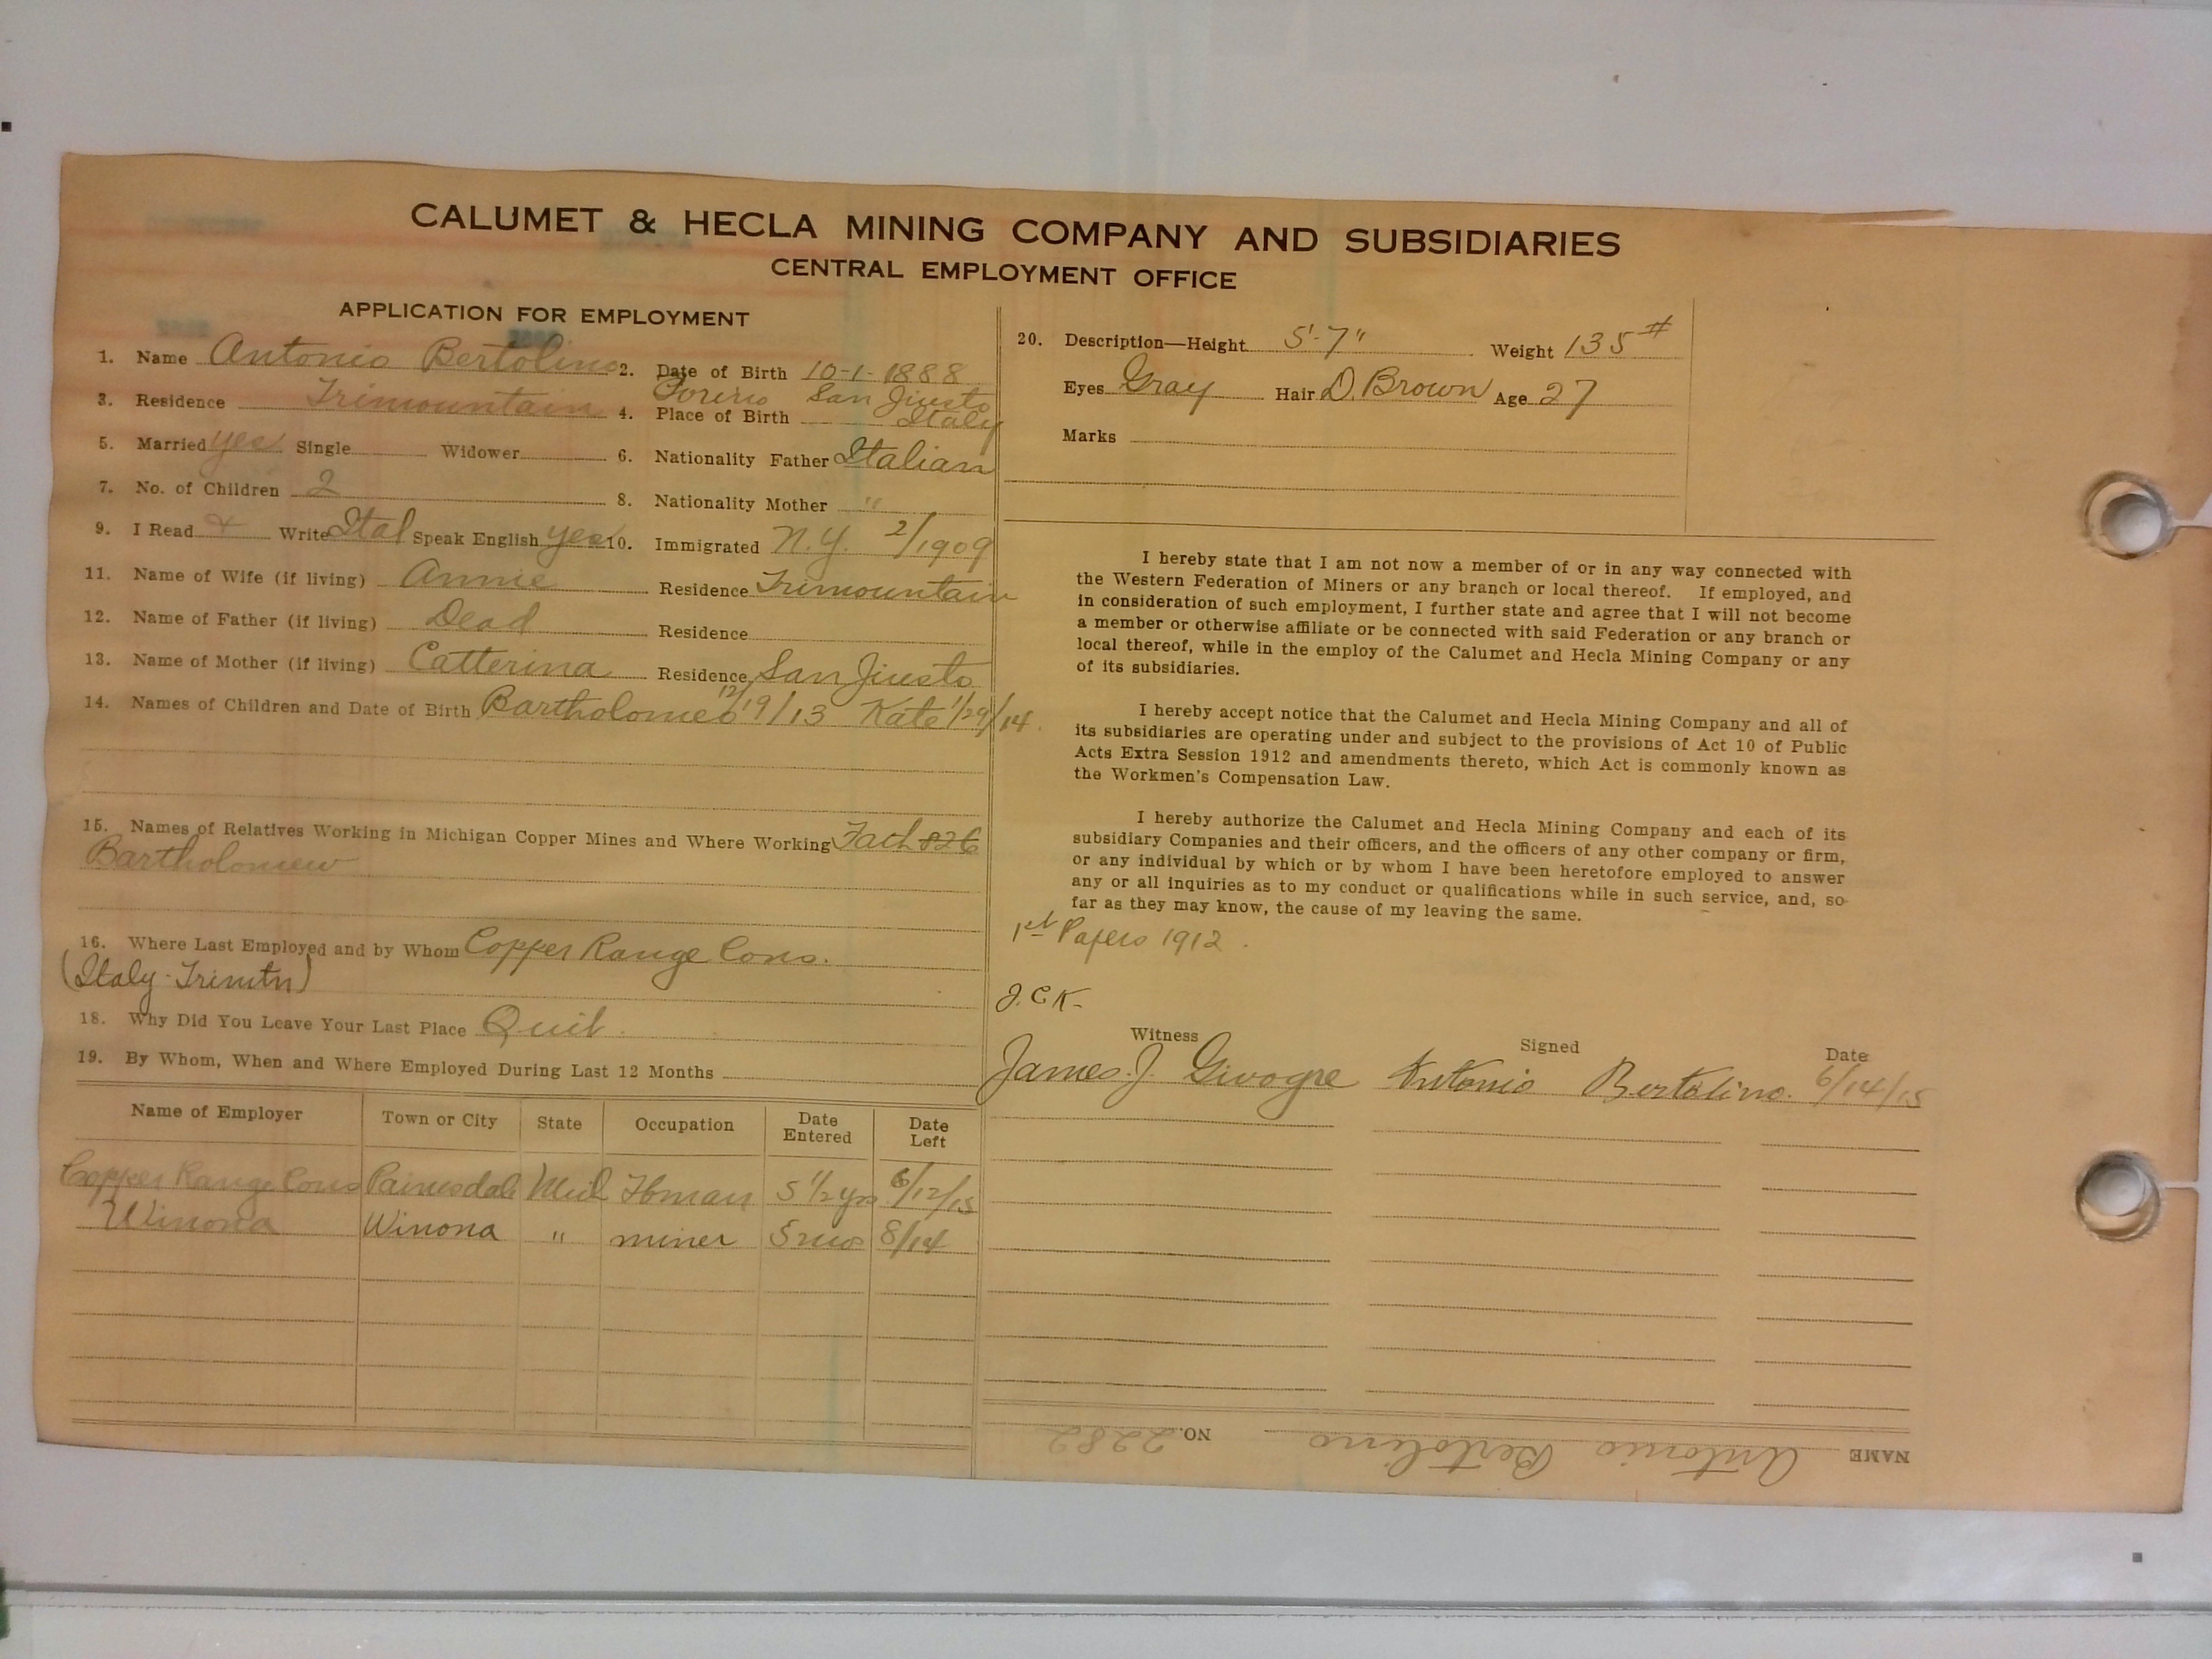 CALUMET & HECLA MINING COMPANY AND SUBSIDIARIES
CENTRAL EMPLOYMENT OFFICE
APPLICATION FOR EMPLOYMENT
1. Name Antonio Bertolino 2. Date of Birth 10-1-1888
San Jiusto
3. Residence Trimountain 4. Place of Birth Italy
5. Married yes Single Widower 6. Nationality Father Italian
7. No. of Children 2 8. Nationality Mother "
9. I Read & Write Ital Speak English yes 10. Immigrated N.Y. 2/1909
11. Name of Wife (if living) Annie Residence Trimountain
12. Name of Father (if living) Dead Residence
13. Name of Mother (if living) Catterina Residence San Jiusto
14. Names of Children and Date of Birth Bartholomeo 12/19/13 Kate 1/29/14.
15. Names of Relatives Working in Michigan Copper Mines and Where Working
Bartholomew
16. Where Last Employed and by Whom Copper Range Cons.
(Italy-Trimtn)
18. Why Did You Leave Your Last Place Quit.
19. By Whom, When and Where Employed During Last 12 Months
Name of Employer Town or City State Occupation Date Entered Date Left
Copper Range Cons Painesdale Mich 5 1/2 yrs 6/12/15
Winona Winona " miner 5 mos 8/14
20. Description—Height 5'-7" Weight 135#
Eyes Gray Hair D. Brown Age 27
Marks
I hereby state that I am not now a member of or in any way connected with
the Western Federation of Miners or any branch or local thereof. If employed, and
in consideration of such employment, I further state and agree that I will not become
a member or otherwise affiliate or be connected with said Federation or any branch or
local thereof, while in the employ of the Calumet and Hecla Mining Company or any
of its subsidiaries.
I hereby accept notice that the Calumet and Hecla Mining Company and all of
its subsidiaries are operating under and subject to the provisions of Act 10 of Public
Acts Extra Session 1912 and amendments thereto, which Act is commonly known as
the Workmen's Compensation Law.
I hereby authorize the Calumet and Hecla Mining Company and each of its
subsidiary Companies and their officers, and the officers of any other company or firm,
or any individual by which or by whom I have been heretofore employed to answer
any or all inquiries as to my conduct or qualifications while in such service, and, so
far as they may know, the cause of my leaving the same.
1st Papers 1912.
J.C.K.
Witness Signed Date
James J. Givogre Antonio Bertolino. 6/14/15
NAME Antonio Bertolino NO. 2282